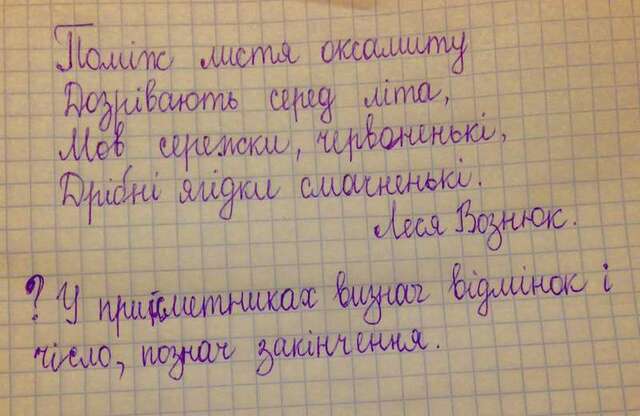 Поміж листя оксамиту
Дозрівають серед літа,
Мов сережки, червоненькі,
Дрібні ягідки смачненькі.
Леся Вознюк.
? У прийметниках визнач відмінок і
число, познач закінчення.